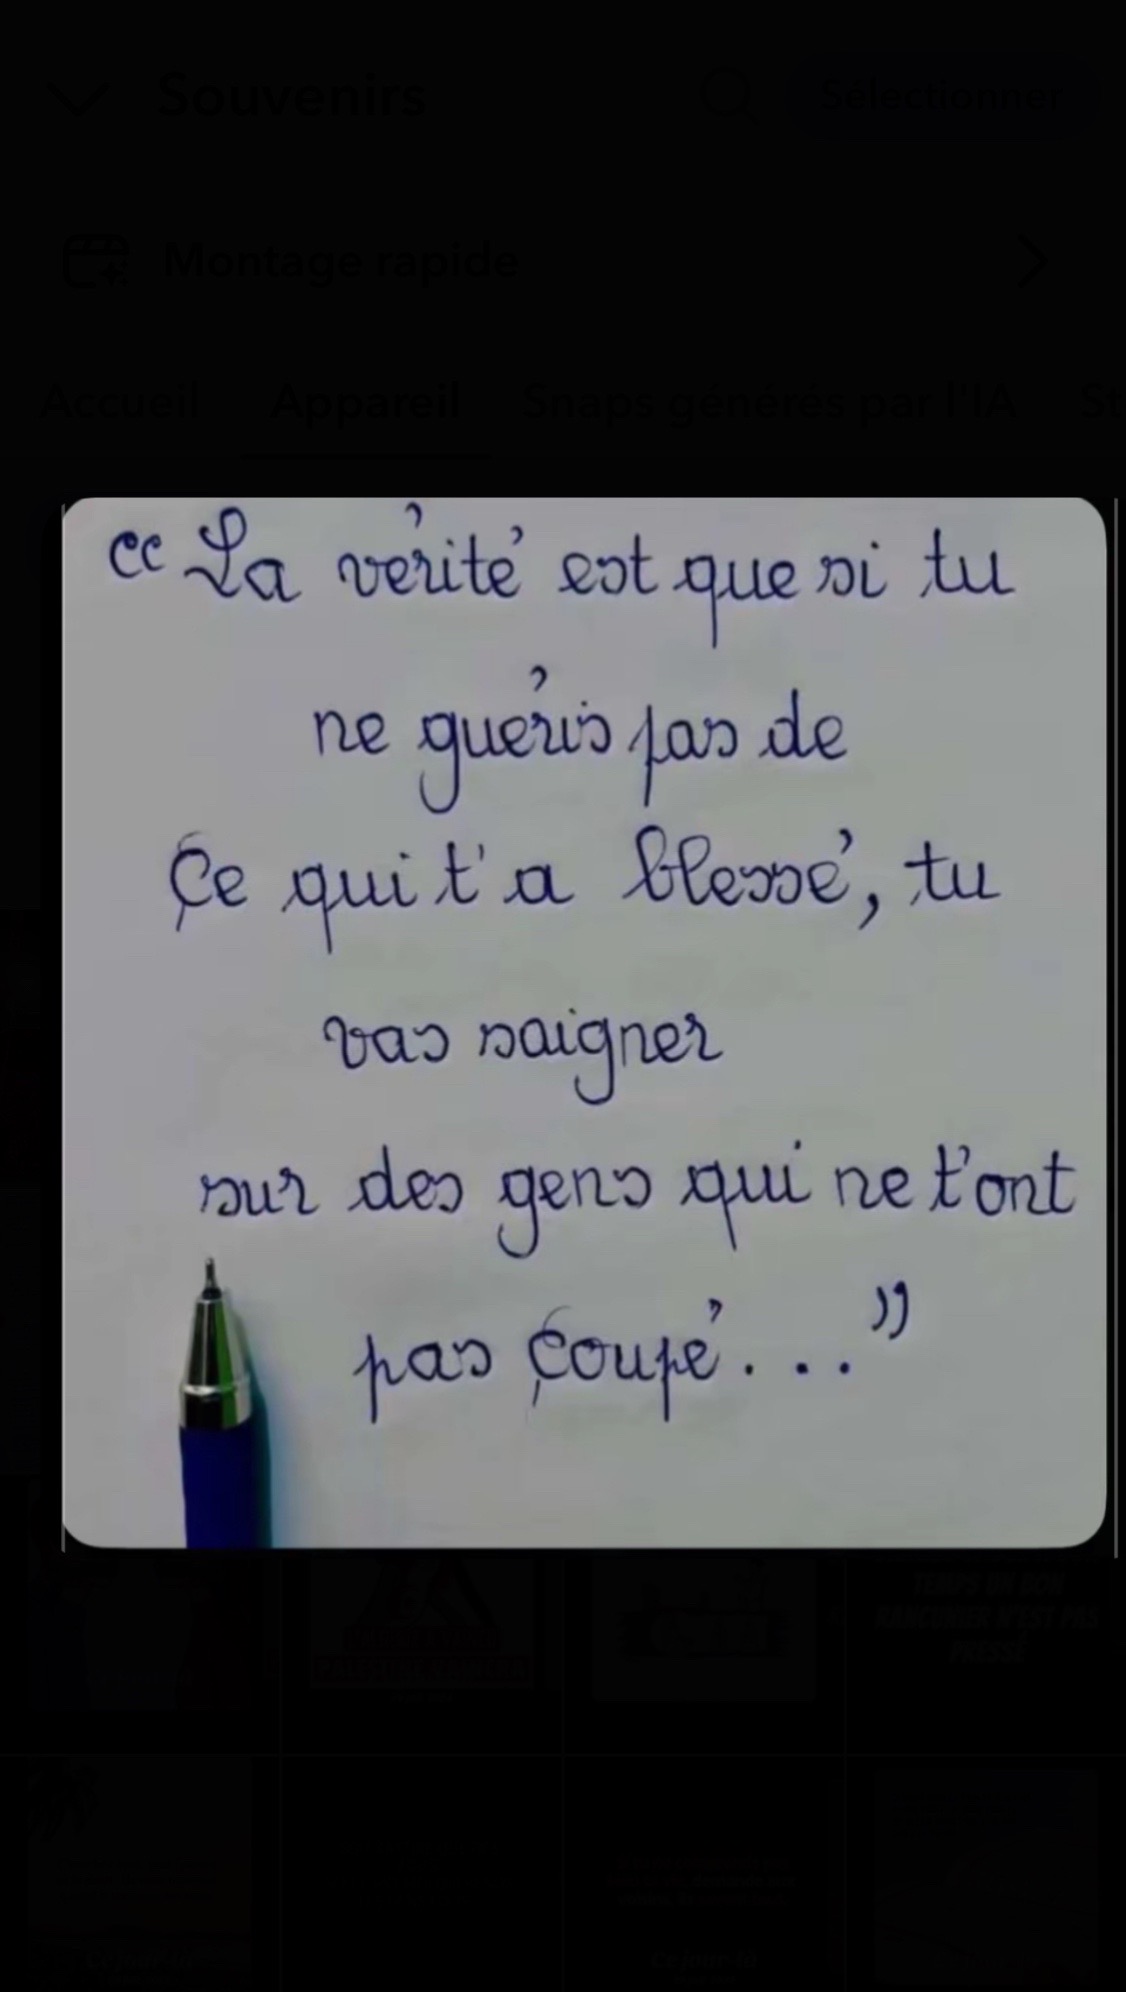 Souvenirs
Sélectionner
Montage rapide
Accueil Appareil Snaps générés par l'IA St
“La vérité est que si tu
ne guéris pas de
Ce qui t'a blessé, tu
vas saigner
sur des gens qui ne t'ont
pas Coupé...”